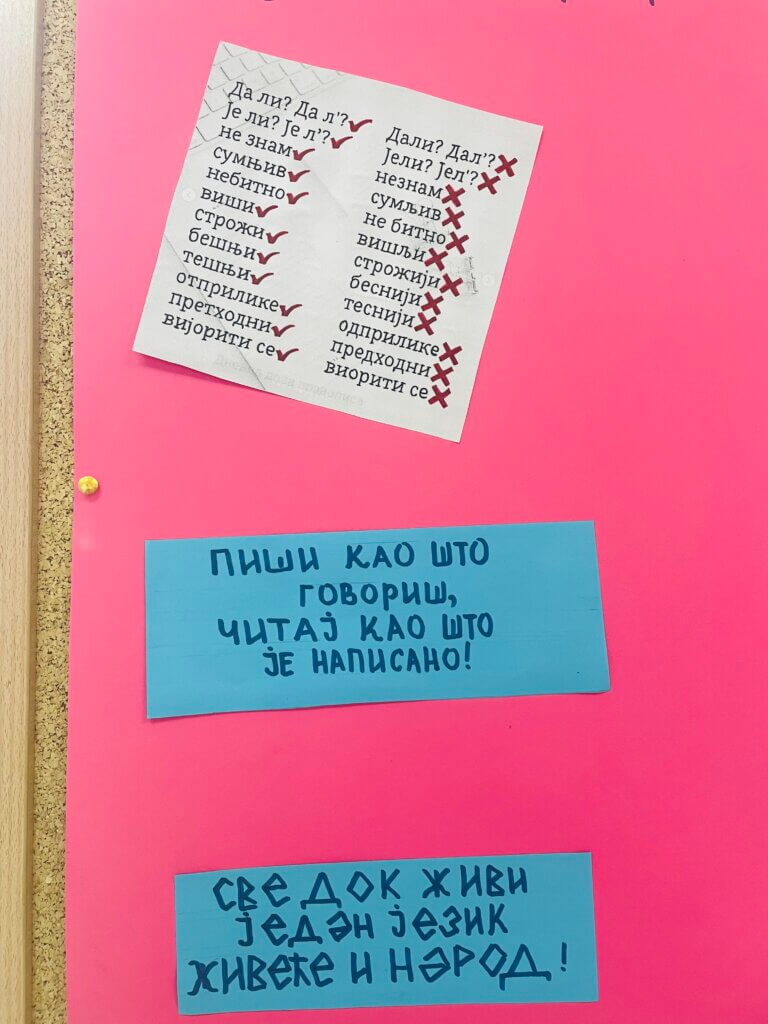 Да ли? Да л'?
Је ли? Је л'?
не знам
сумњив
небитно
виши
строжи
бешњи
тешњи
отприлике
претходни
вијорити се
Дали? Дал'?
Јели? Јел'?
незнам
сумљив
не битно
вишљи
строжији
беснији
теснији
одприлике
предходни
виорити се
Дневна доза правописа
ПИШИ КАО ШТО
ГОВОРИШ,
ЧИТАЈ КАО ШТО
ЈЕ НАПИСАНО!
СВЕ ДОК ЖИВИ
ЈЕДАН ЈЕЗИК
ЖИВЕЋЕ И НАРОД!